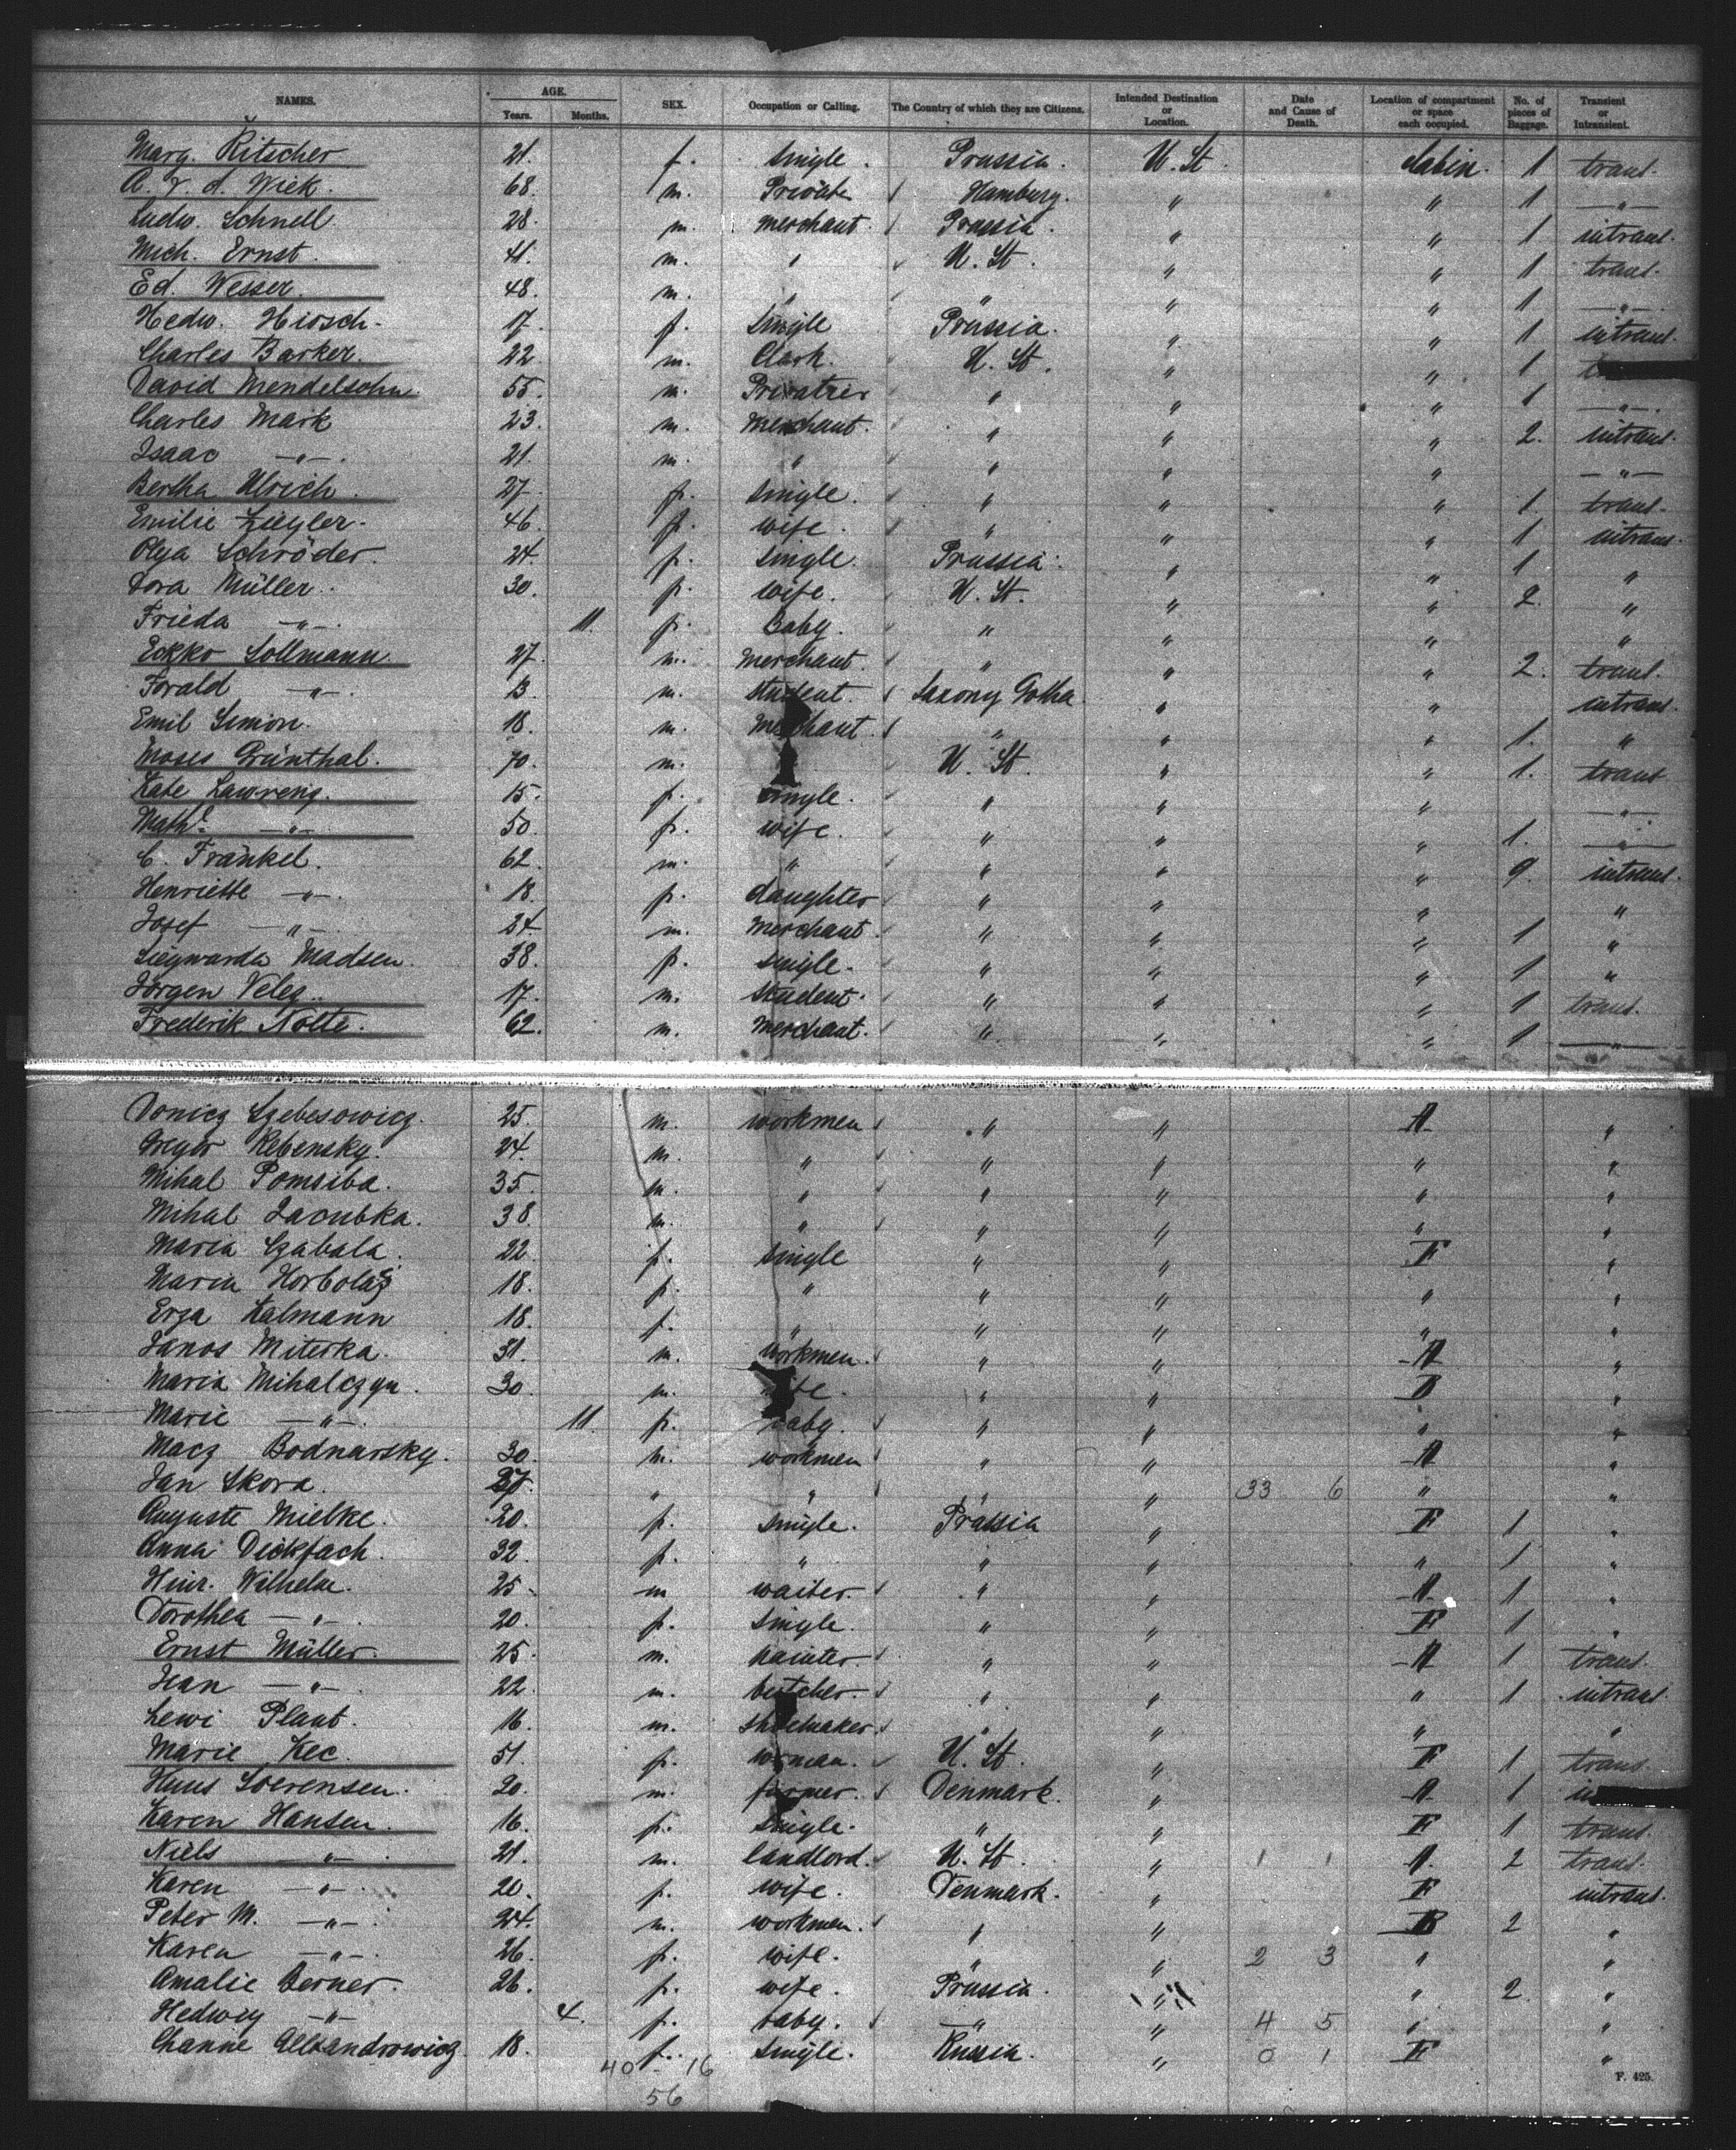 NAMES. AGE. Years. Months. SEX. Occupation or Calling. The Country of which they are Citizens. Intended Destination or Location. Date and Cause of Death. Location of compartment or space each occupied. No. of pieces of Baggage. Transient or Intransient.
Marg. Ritscher 21. f. single. Prussia. U. St Cabin. 1 trans.
A. v. d. Wiek. 68. m. Private Hamburg. " " 1 —"—
Ludw. Schnell 28. m. merchant. Prussia. " " 1 intrans.
Mich. Ernst. 41. m. " U. St. " " 1 trans.
Ed. Wesser. 48. m. " " " " 1 —"—
Hedw. Hirsch. 17. f. single Prussia. " " 1 intrans.
Charles Barker. 22 m. Clark. U. St. " " 1
David Mendelsohn. 55. m. Privatier " " " 1 —"—
Charles Mark 23. m. Merchant. " " " 2. intrans.
Isaac —"— 21. m. " " " " —"—
Bertha Ulrich. 27. f. single. " " " 1 trans.
Emilie Ziegler. 46. f. wife. " " " 1 intrans.
Olga Schröder. 24. f. single. Prussia. " " 1 "
Dora Müller. 30. f. wife. U. St. " " 2. "
Frieda —"— 11. f. Baby. " " " "
Eckko Sollmann. 27. m. merchant. " " " 2. trans.
Forald —"— 13. m. student. Saxony Gotha " " intrans.
Emil Simon. 18. m. Merchant. " " " 1. "
Moses Grünthal. 70. m. U. St. " " 1. trans
Kate Lawreng. 15. f. single. " " " —"—
Math. —"— 50. f. wife. " " " 1. —"—
C. Fränkel. 62. m. " " " " 9. intrans.
Henriette —"— 18. f. daughter " " " "
Josef —"— 24. m. Merchant. " " " 1 "
Siegwarda Madsen. 38. f. single. " " " 1 "
Jörgen Veleg.. 17. m. student. " " " 1 trans.
Frederik Nolte. 62. m. Merchant. " " " 1 —"—
Donicz Szebesowicz. 25. m. workmen " " A "
Gregor Rebensky. 24. m. " " " " "
Mihal Pomsiba. 35. m. " " " " "
Mihal Jacubka. 38. m. " " " " "
Maria Szabala. 22. f. single " " F "
Maria Horbolaz 18. f. " " " " "
Erza Kalmann 18. f. " " " " "
Janos Miterka. 31. m. workmen. " " A "
Maria Mihalczyn. 30. m. wife. " " B "
Marie —"— 11. f. baby. " " " "
Macz Bodnarsky. 30. m. workmen " " A "
Jan Skora. 27. " " " " 33 6 " "
Auguste Mielke. 20. f. single. Prussia " F 1 "
Anna Dickfach. 32. f. " " " " 1 "
Hinr. Wilhelm. 25. m waiter. " " A 1 "
Dorothea —"— 20. f. single. " " F 1 "
Ernst Müller. 25. m. painter " " A 1 trans.
Jean —"— 22. m. butcher. " " " 1 intrans.
Lewi Plaut. 16. m. shoemaker. " " " "
Marie Kec. 51. f. woman. U. St. " F 1 trans.
Hans Soerensen. 20. m. farmer. Denmark. " A 1
Karen Hansen. 16. f. single. " " F 1 trans.
Niels —"— 21. m. landlord. U. St. " 1 1 A. 2 trans.
Karen —"— 20. f. wife. Denmark. " F intrans.
Peter M. —"— 24. m. workmen. " " B 2 "
Karen —"— 26. f. wife. " " 2 3 " "
Amalie Berner. 26. f. wife. Prussia. " " 2 "
Hedwig —"— 4. f. baby. —"— " 4 5 " "
Channe Alexandrowicz 18. f. single. Russia. " 0 1 F "
40 16
56
F. 425.